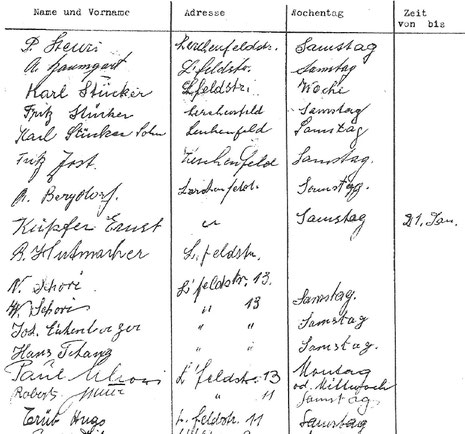 Name und Vorname Adresse Wochentag Zeit
von bis
P. Steuri Lerchenfeldstr. Samstag
A. Baumgart L'feldstr. Samstag
Karl Stücker Lfeldstr. Woche
Fritz Stücker Lerchenfeld Samstag
Karl Stücker Sohn Lerchenfeld Samstag
Fritz Jost. Lerchenfeld Samstag.
A. Bergdorf. Lerchenfeldstr. Samstag.
Küpfer Ernst " Samstag 21. Jan.
B. Hutmacher L.feldstr.
N. Schori L'feldstr. 13.
W. Schori " 13 Samstag.
Jos. Eichenberger " " Samstag
Hans Tschanz " " Samstag.
Paul L'feldstr. 13 Montag
od. Mittwoch
Robert " 11 Samstag
Trüb Hugo L.feldstr. 11 Samstag